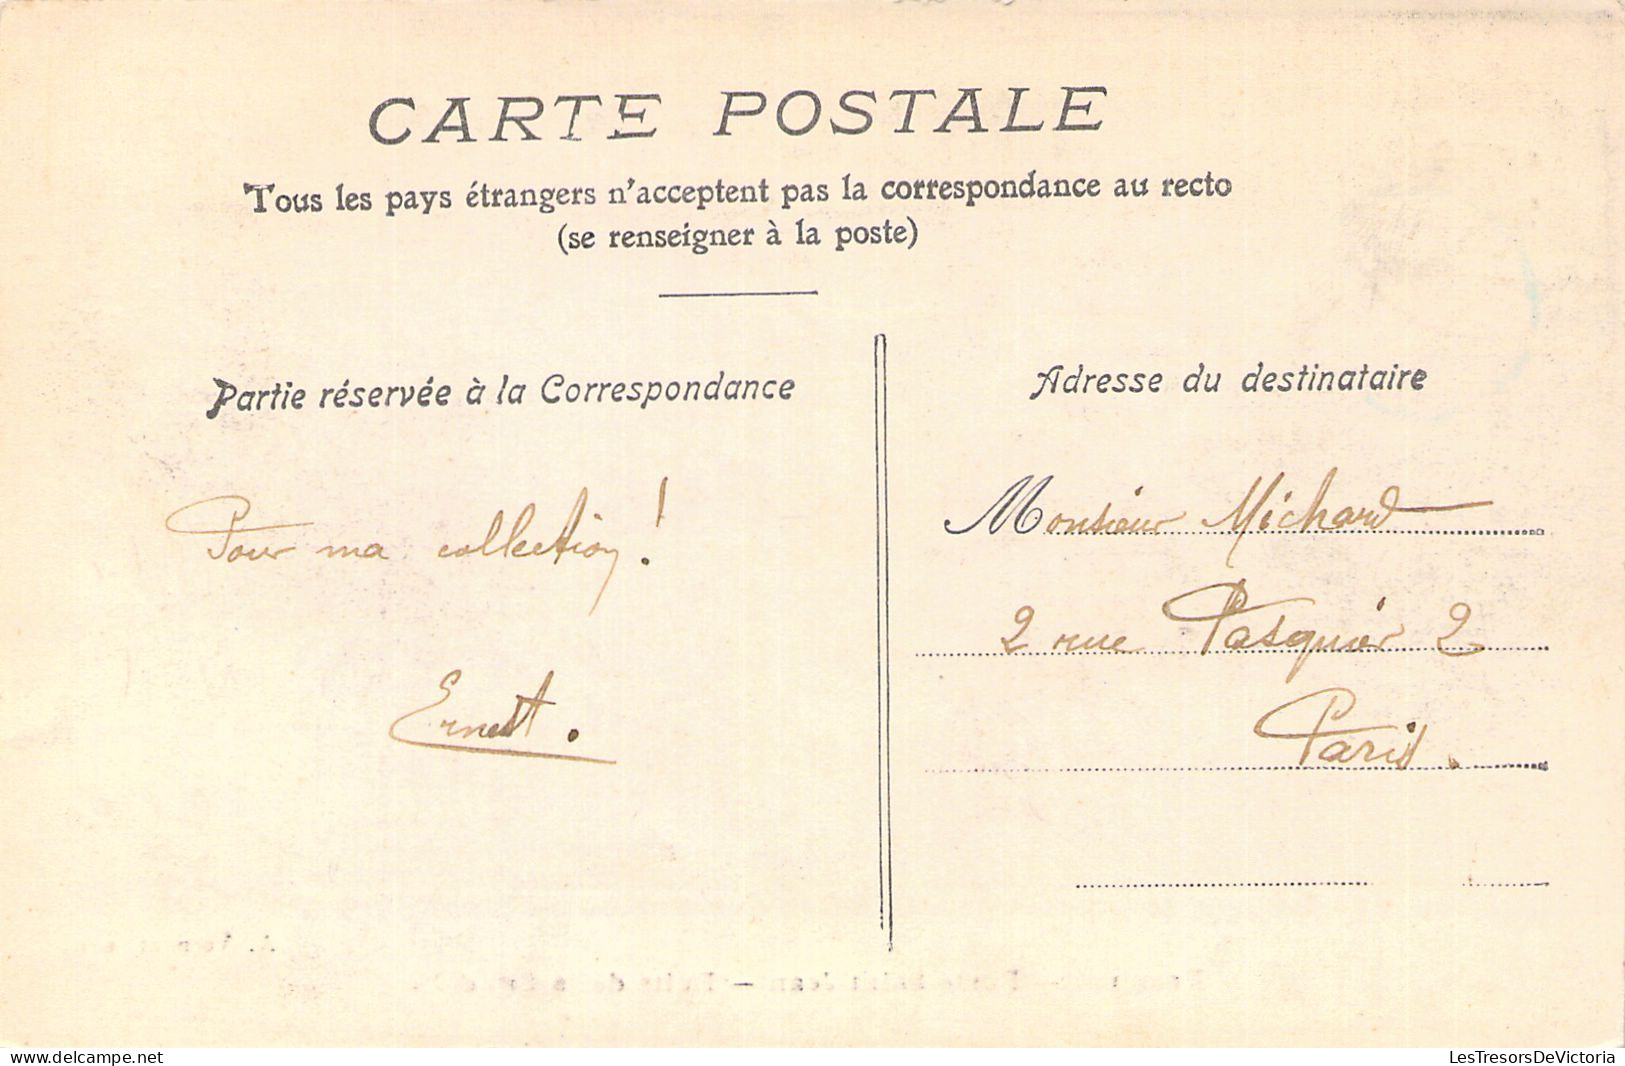 CARTE POSTALE
Tous les pays étrangers n'acceptent pas la correspondance au recto
(se renseigner à la poste)
Partie réservée à la Correspondance
Pour ma collection!
Ernest.
Adresse du destinataire
Monsieur Michard
2 rue Pasquier 2
Paris.
delcampe.net
LesTresorsDeVictoria